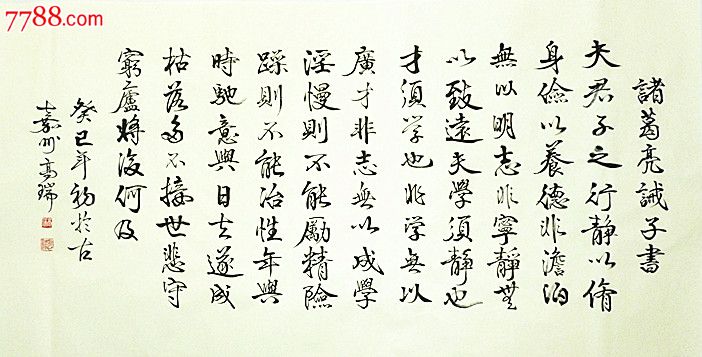 7788.com
諸葛亮誡子書
夫君子之行靜以脩
身儉以養德非澹泊
無以明志非寧靜無
以致遠夫學須靜也
才須学也非学無以
廣才非志無以成學
淫慢則不能勵精險
躁則不能冶性年與
時馳意與日去遂成
枯落多不接世悲守
窮廬將復何及
癸巳年初於古
嘉州高瑞